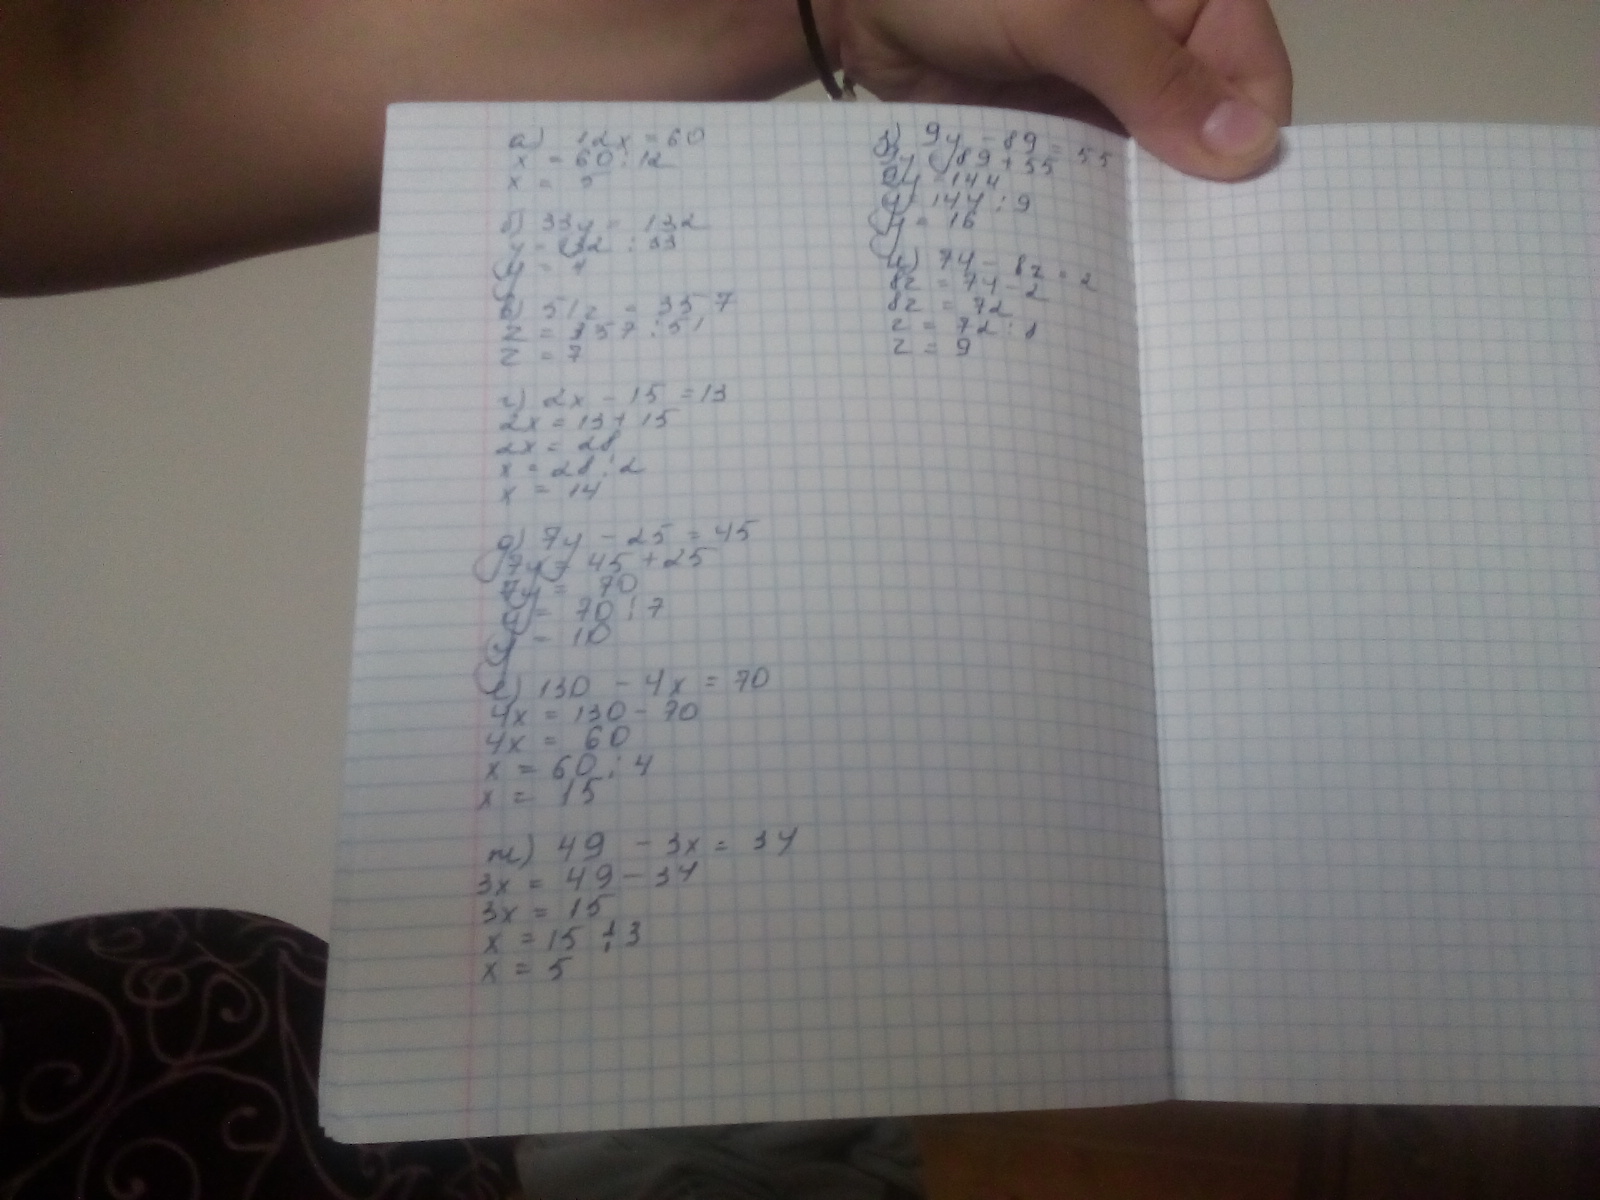 а) 12x = 60
x = 60 : 12
x = 5
б) 33y = 132
y = 132 : 33
y = 4
в) 51z = 357
z = 357 : 51
z = 7
г) 2x - 15 = 13
2x = 13 + 15
2x = 28
x = 28 : 2
x = 14
д) 7y - 25 = 45
7y = 45 + 25
7y = 70
y = 70 : 7
y = 10
е) 130 - 4x = 70
4x = 130 - 70
4x = 60
x = 60 : 4
x = 15
ж) 49 - 3x = 34
3x = 49 - 34
3x = 15
x = 15 : 3
x = 5
з) 9y - 89 = 55
9y = 89 + 55
9y = 144
y = 144 : 9
y = 16
и) 74 - 8z = 2
8z = 74 - 2
8z = 72
z = 72 : 8
z = 9